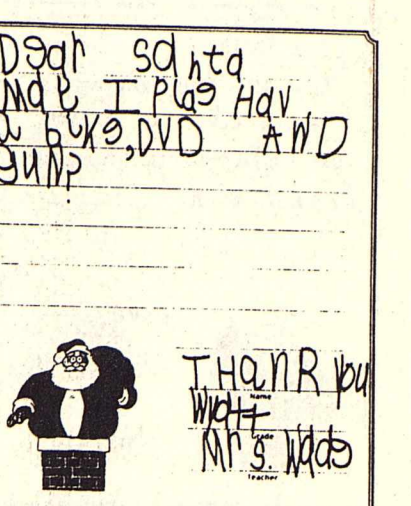 Dear santa
Mae I Plae Hav
a buKe, DVD AND
guN?
THanR you
Name
Wyatt
Grade
Mrs. Wade
Teacher